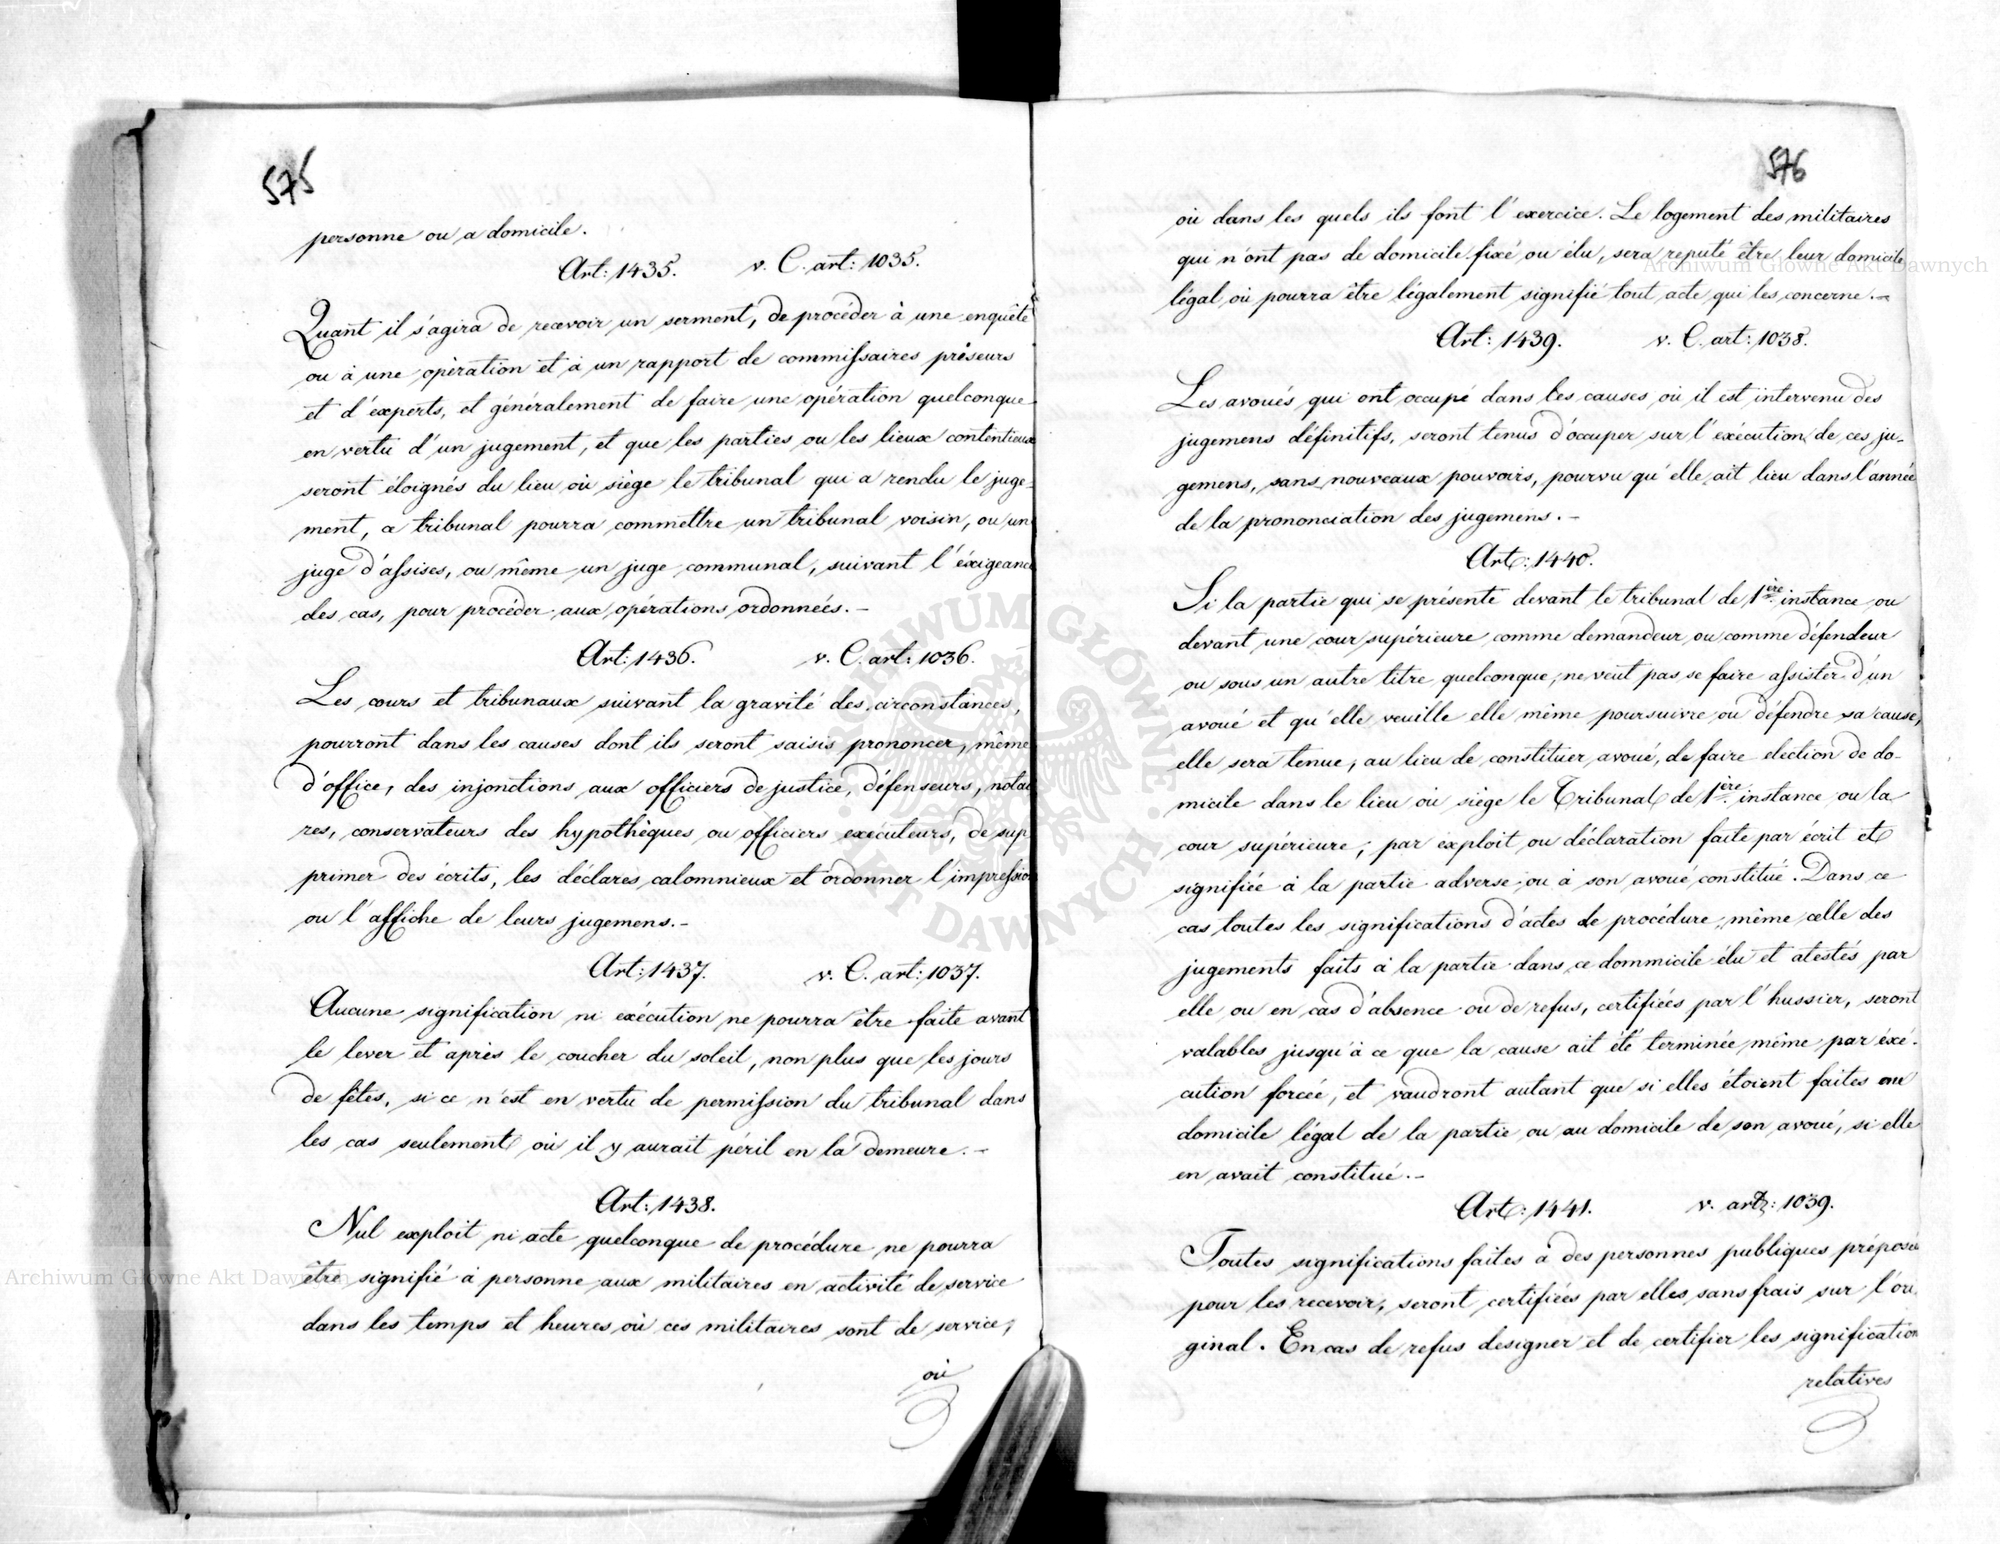 575
personne ou a domicile.
Art: 1435. v. C. art: 1035.
Quant il s'agira de recevoir un serment, de procéder à une enquête
ou à une opération et à un rapport de commissaires priseurs
et d'experts, et généralement de faire une opération quelconque
en vertu d'un jugement, et que les parties ou les lieux contentieux
seront éloignés du lieu où siège le tribunal qui a rendu le juge-
ment, ce tribunal pourra commettre un tribunal voisin, ou un
juge d'assises, ou même un juge communal, suivant l'éxigeance
des cas, pour procéder aux opérations ordonnées. –
Art: 1436. v. C. art: 1036.
Les cours et tribunaux suivant la gravité des circonstances,
pourront dans les causes dont ils seront saisis prononcer, même
d'office, des injonctions aux officiers de justice, défenseurs, notai
res, conservateurs des hypothèques ou officiers exécuteurs, de sup
primer des écrits, les déclares calomnieux et ordonner l'impression
ou l'affiche de leurs jugemens. –
Art: 1437. v. C. art: 1037.
Aucune signification ni exécution ne pourra être faite avant
le lever et après le coucher du soleil, non plus que les jours
de fêtes, si ce n'est en vertu de permission du tribunal dans
les cas seulement où il y aurait péril en la demeure. –
Art: 1438.
Nul exploit ni acte quelconque de procédure ne pourra
être signifié à personne aux militaires en activité de service
dans les temps et heures où ces militaires sont de service,
où
576
où dans les quels ils font l'exercice. Le logement des militaires
qui n'ont pas de domicile fixé ou élu, sera reputé être leur domicile
légal où pourra être légalement signifié tout acte qui les concerne. –
Art: 1439. v. C. art: 1038.
Les avoués qui ont occupé dans les causes où il est intervenu des
jugemens définitifs, seront tenus d'occuper sur l'exécution de ces ju-
gemens, sans nouveaux pouvoirs, pourvu qu'elle ait lieu dans l'année
de la prononciation des jugemens. –
Art: 1440.
Si la partie qui se présente devant le tribunal de 1ère instance ou
devant une cour supérieure comme demandeur ou comme défendeur
ou sous un autre titre quelconque, ne veut pas se faire assister d'un
avoué et qu'elle veuille elle même poursuivre ou défendre sa cause,
elle sera tenue, au lieu de constituer avoué, de faire election de do-
micile dans le lieu où siège le Tribunal de 1ère instance ou la
cour supérieure, par exploit ou déclaration faite par écrit et
signifiée à la partie adverse ou à son avoué constitué. Dans ce
cas toutes les significations d'actes de procédure, même celle des
jugements faits à la partie dans ce dommicile élu et atestés par
elle ou en cas d'absence ou de refus, certifiées par l'hussier, seront
valables jusqu'à ce que la cause ait été terminée même par éxé-
cution forcée, et vaudront autant que si elles étoient faites au
domicile légal de la partie ou au domicile de son avoué, si elle
en avait constitué. –
Art: 1441. v. art: 1039.
Toutes significations faites à des personnes publiques préposées
pour les recevoir, seront certifiées par elles sans frais sur l'ori
ginal. En cas de refus designer et de certifier les signification
relatives
Archiwum Główne Akt Dawnych
Archiwum Główne Akt Dawnych
ARCHIWUM GŁÓWNE · AKT DAWNYCH ·